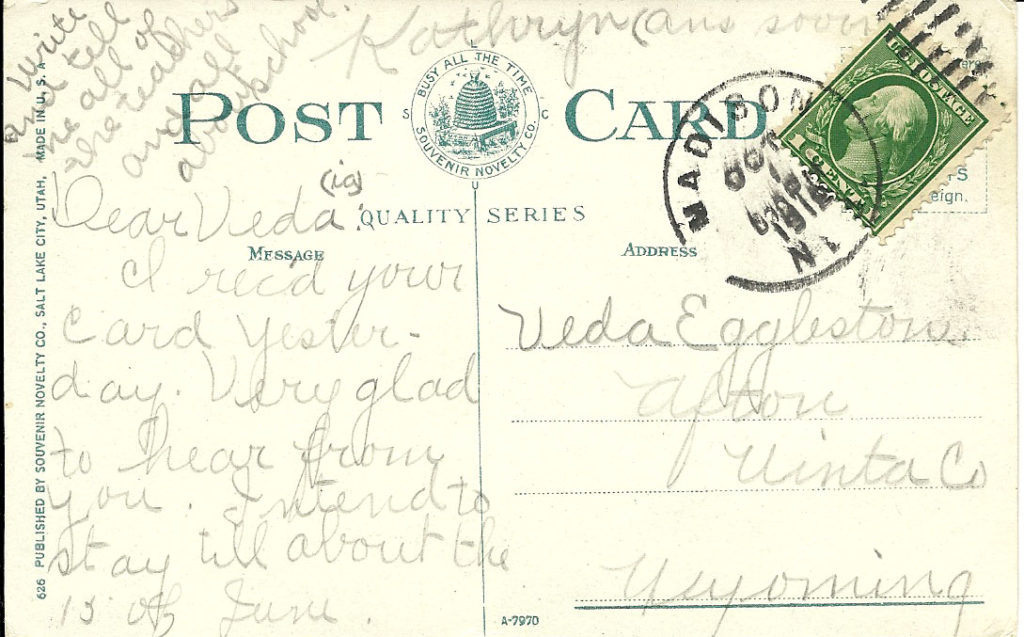 Kathryn (ans soon
write
and tell
me all of
the teachers
and all
about school.
POST CARD
BUSY ALL THE TIME
SOUVENIR NOVELTY CO.
S L C U
QUALITY SERIES
MESSAGE
ADDRESS
MADISON
1912
U.S. POSTAGE
eign.
Dear Veda (ig)
I rec'd your
card yester-
day. Very glad
to hear from
you. Intend to
stay till about the
15 of June.
Veda Eggleston
Afton
Uinta Co
Wyoming
626 PUBLISHED BY SOUVENIR NOVELTY CO., SALT LAKE CITY, UTAH, MADE IN U. S. A.
A-7970